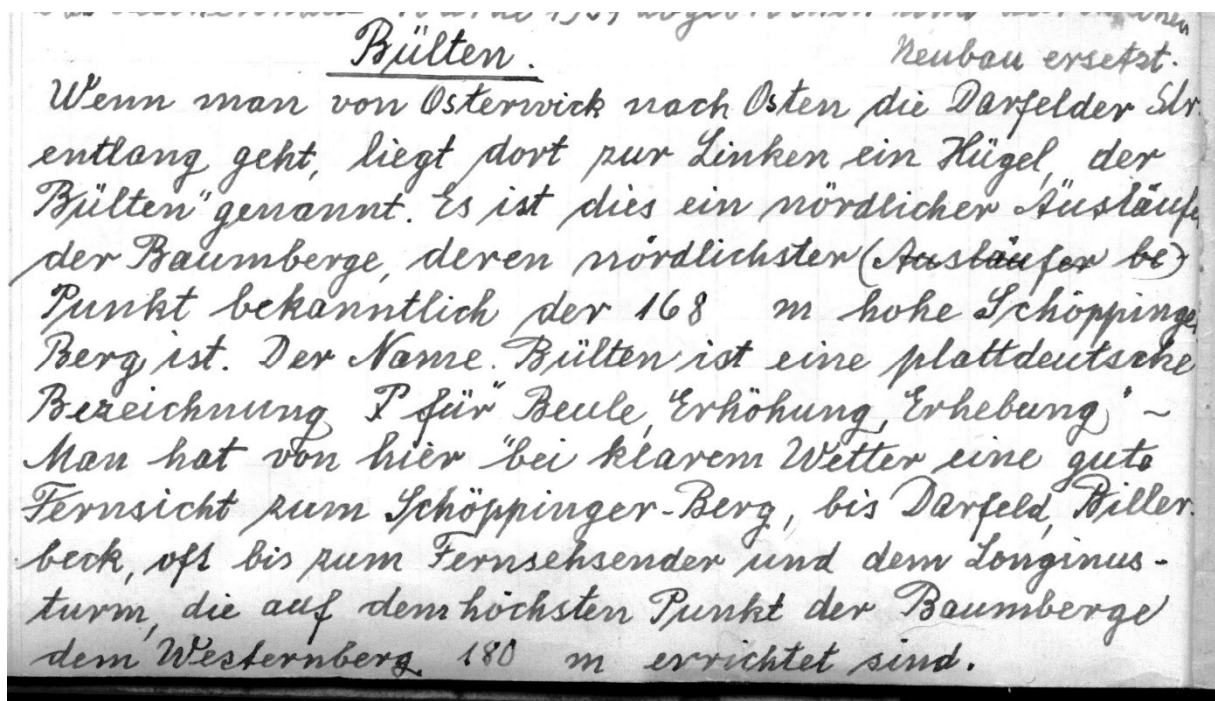 1969 abgebrochen und durch einen
Neubau ersetzt.
Bülten.
Wenn man von Osterwick nach Osten die Darfelder Str.
entlang geht, liegt dort zur Linken ein Hügel, der
Bülten" genannt. Es ist dies ein nördlicher Ausläufe
der Baumberge, deren nördlichster (Ausläufer be)
Punkt bekanntlich der 168 m hohe Schöppinge
Berg ist. Der Name Bülten ist eine plattdeutsche
Bezeichnung für "Beule, Erhöhung, Erhebung" ~
Man hat von hier bei klarem Wetter eine gute
Fernsicht zum Schöppinger-Berg, bis Darfeld, Biller-
beck, oft bis zum Fernsehsender und dem Longinus-
turm, die auf dem höchsten Punkt der Baumberge
dem Westernberg 180 m errichtet sind.